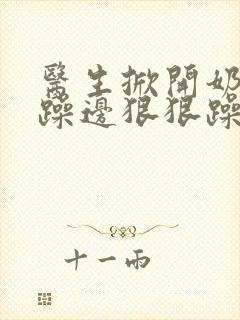 醫生掀開奶
躁邊狠狠躁
十一雨